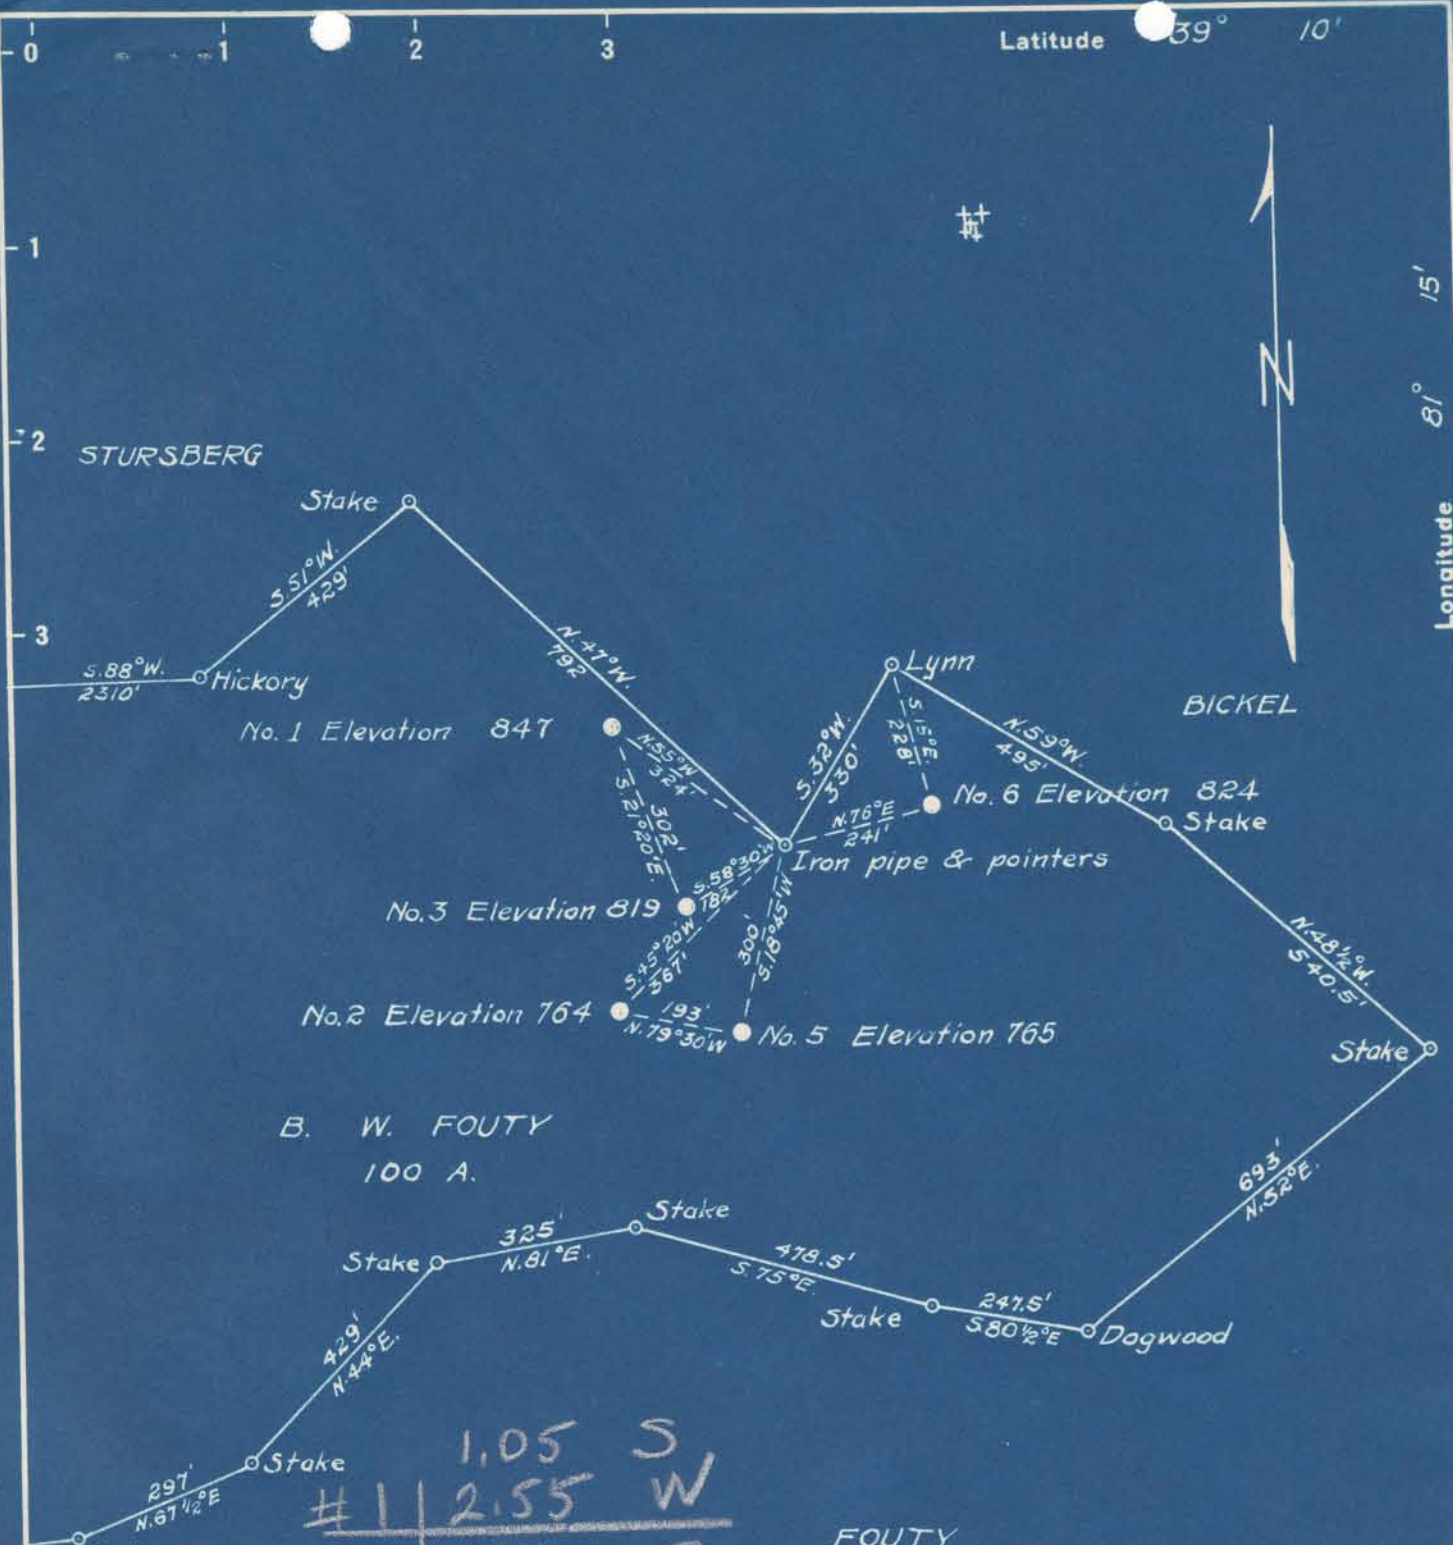 0 1 2 3 Latitude 39° 10'
1
15'
81°
2
STURSBERG
Stake
Longitude
N
S.51°W.
429'
3
N.47°W.
792
S.88°W.
2310'
Hickory
Lynn
BICKEL
No. 1 Elevation 847
N.55°W
324'
S.32°W.
330'
S.15°E.
228'
N.59°W.
495'
S.21°20'E.
302'
N.76°E
241'
No. 6 Elevation 824
Stake
Iron pipe & pointers
S.58°30'W
182'
No. 3 Elevation 819
S.45°20'W
367'
300'
S.18°45'W
N.48½°W.
540.5'
No. 2 Elevation 764
193'
N.79°30'W
No. 5 Elevation 765
Stake
B. W. FOUTY
100 A.
693'
N.52°E.
Stake
325'
N.81°E.
Stake
478.5'
S.75°E.
Stake
247.5'
S80½°E
Dogwood
429'
N.44°E.
Stake
297'
N.67½°E
1.05 S
#1 2.55 W
FOUTY